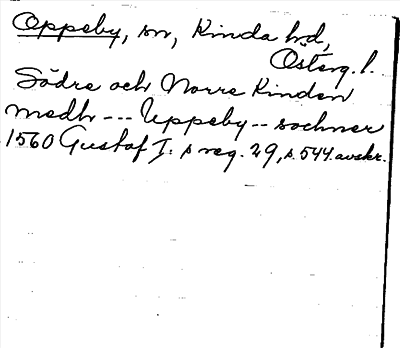 Oppeby, sn, Kinda hd,
Österg. l.
Södre och Norre Kinden
medh --- Uppeby -- sochner
1560 Gustaf I:s reg. 29, s. 544. avskr.